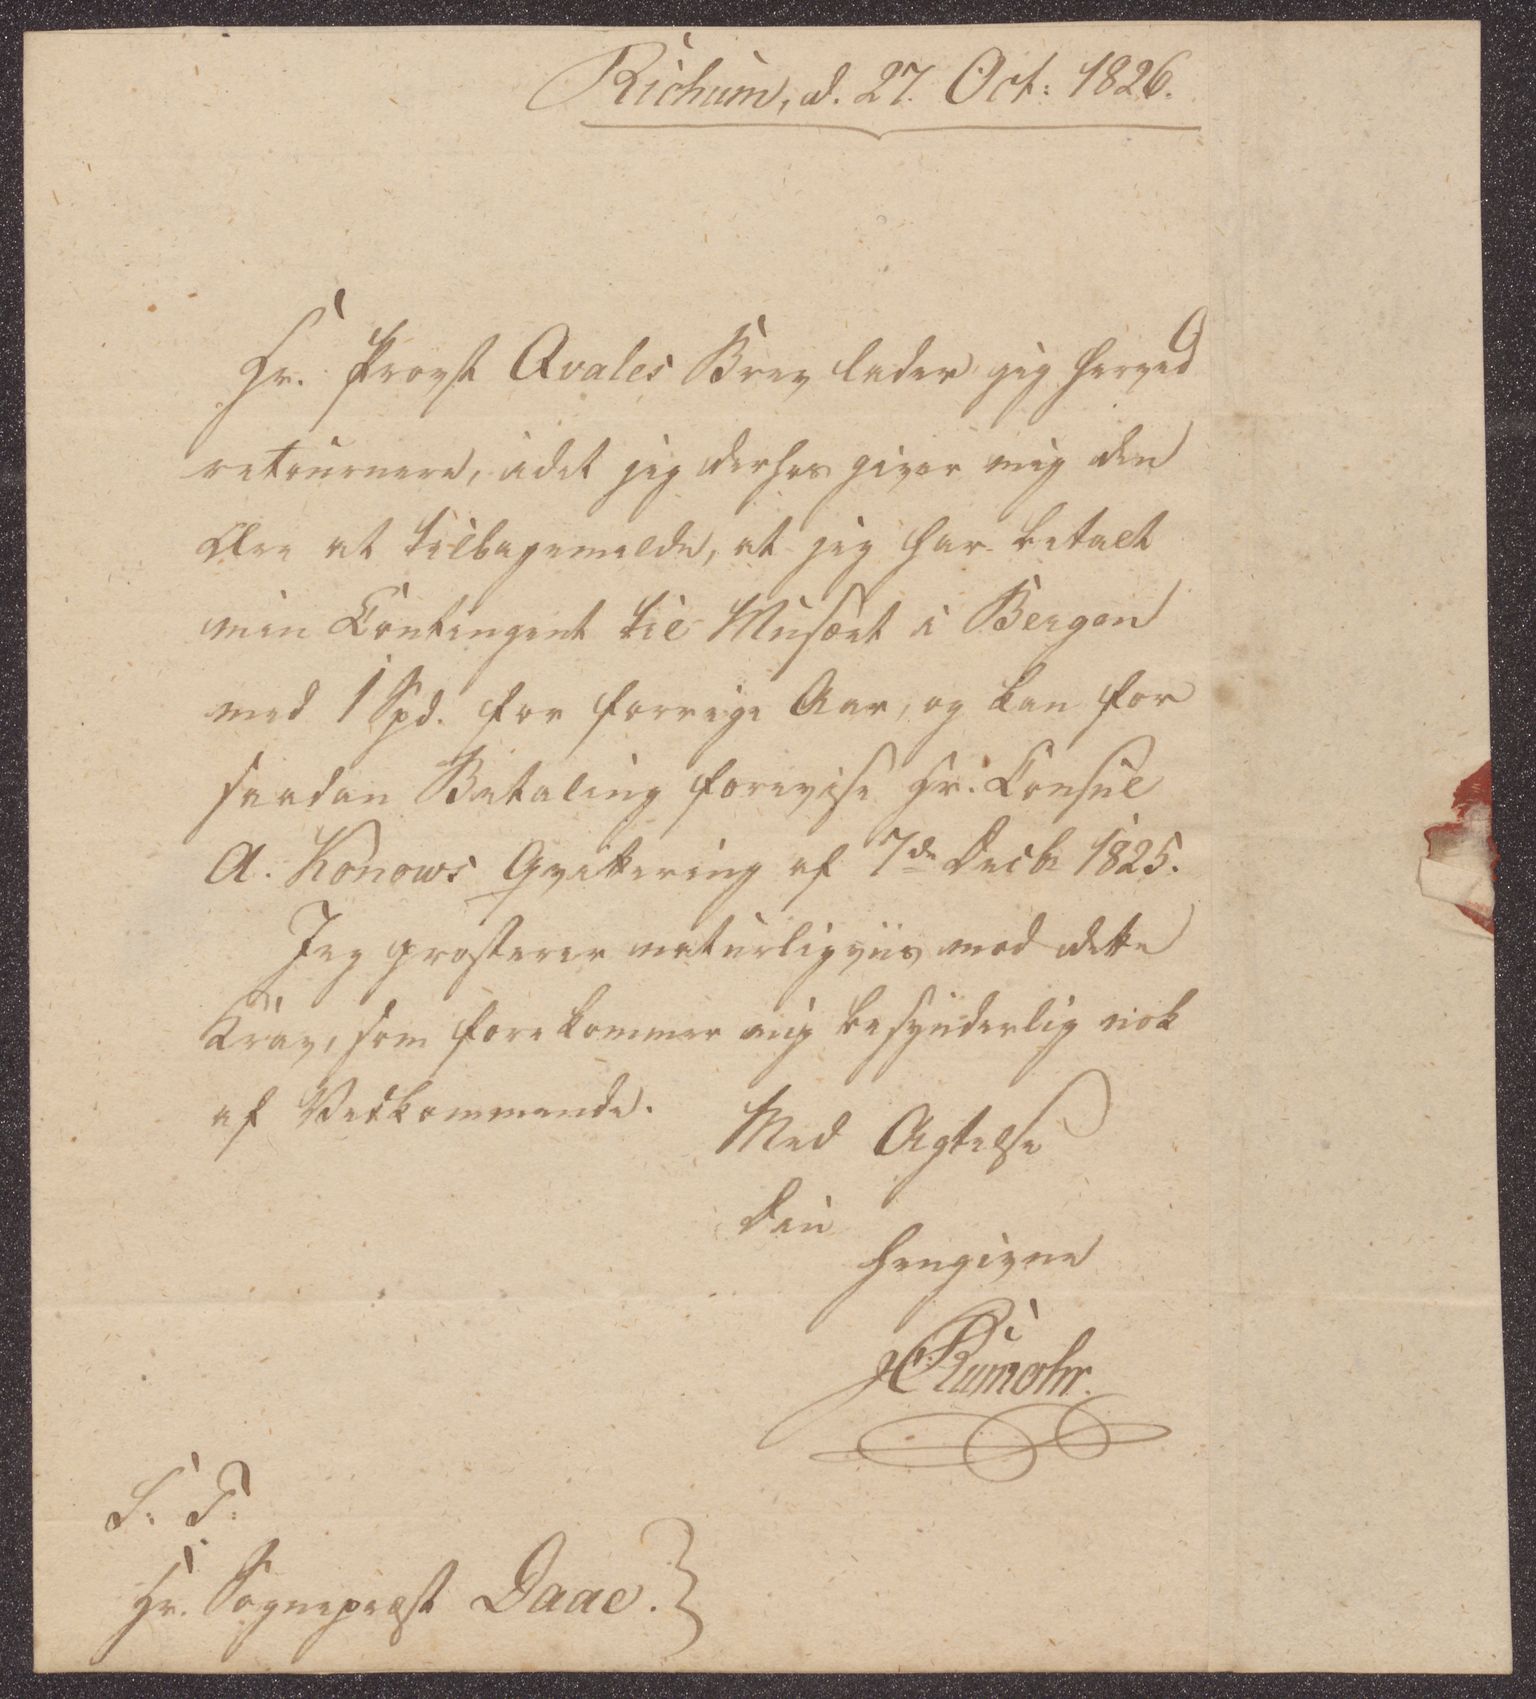 Richum, d. 27. Oct: 1826.
Hr. Provst Qvales Brev lader jeg herved
retournere, idet jeg derhos giver mig den
Ære at tilbagemelde, at jeg har betalt
min Contingent til Musæet i Bergen
med 1 Spd. for forrige Aar, og kan for
saadan Betaling forevise Hr. Consul
A. Konows Qvittering af 7de Decbr 1825.
Jeg protesterer naturligviis mod dette
Krav, som forekommer mig besynderlig nok
af Vedkommende.
Med Agtelse
Din
hengivne
Rumohr.
S. T.
Hr. Sognepræst Daae.